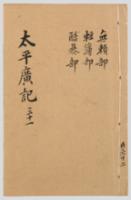 無賴部
輕薄部
酷暴部
太平廣記 三十一